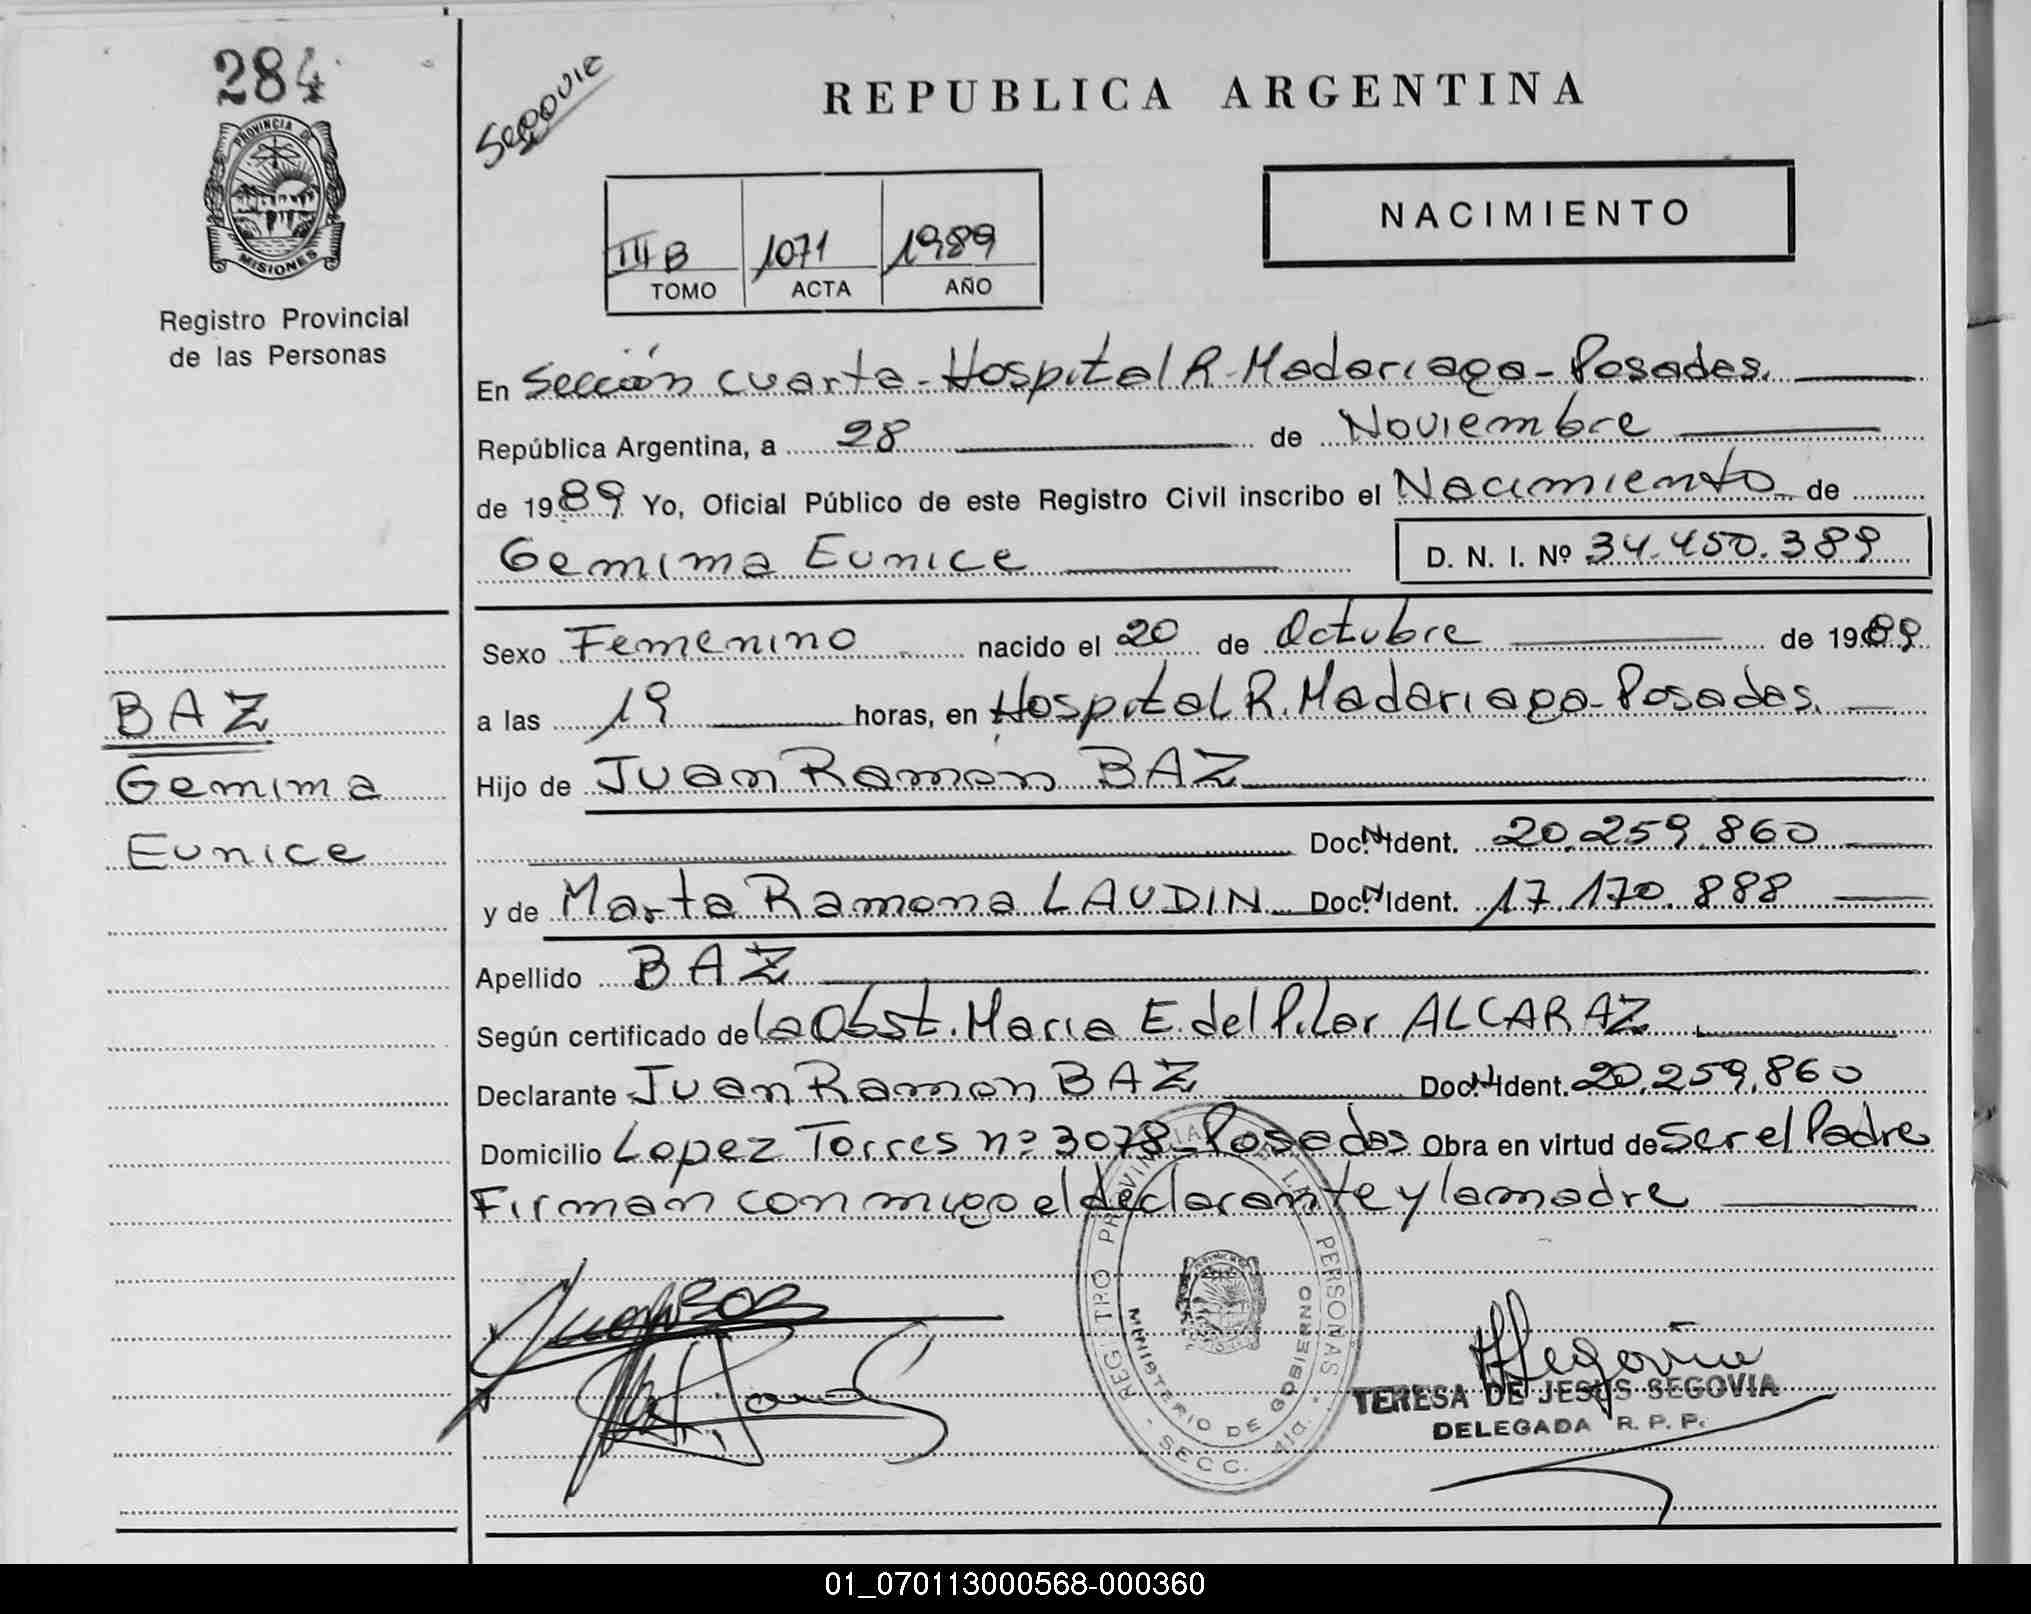 284
PROVINCIA DE
MISIONES
Registro Provincial
de las Personas
BAZ
Gemima
Eunice
Segovia
REPUBLICA ARGENTINA
NACIMIENTO
III B 1071 1989
TOMO ACTA AÑO
En Sección cuarta - Hospital R. Madariaga - Posadas.
República Argentina, a 28 de Noviembre
de 1989 Yo, Oficial Público de este Registro Civil inscribo el Nacimiento de
Gemima Eunice D. N. I. Nº 34.450.389
Sexo Femenino nacido el 20 de Octubre de 1989
a las 19 horas, en Hospital R. Madariaga - Posadas.
Hijo de Juan Ramon BAZ
Doc. N. Ident. 20.259.860
y de Marta Ramona LAUDIN Doc. N. Ident. 17.170.888
Apellido BAZ
Según certificado de la Obst. Maria E. del Pilar ALCARAZ
Declarante Juan Ramon BAZ Doc. N. Ident. 20.259.860
Domicilio Lopez Torres nº 3078 - Posadas Obra en virtud de Ser el Padre
Firman con migo el declarante y la madre
REGISTRO PROVINCIAL DE LAS PERSONAS
MINISTERIO DE GOBIERNO
SECC.
Segovia
TERESA DE JESUS SEGOVIA
DELEGADA R. P. P.
01_070113000568-000360